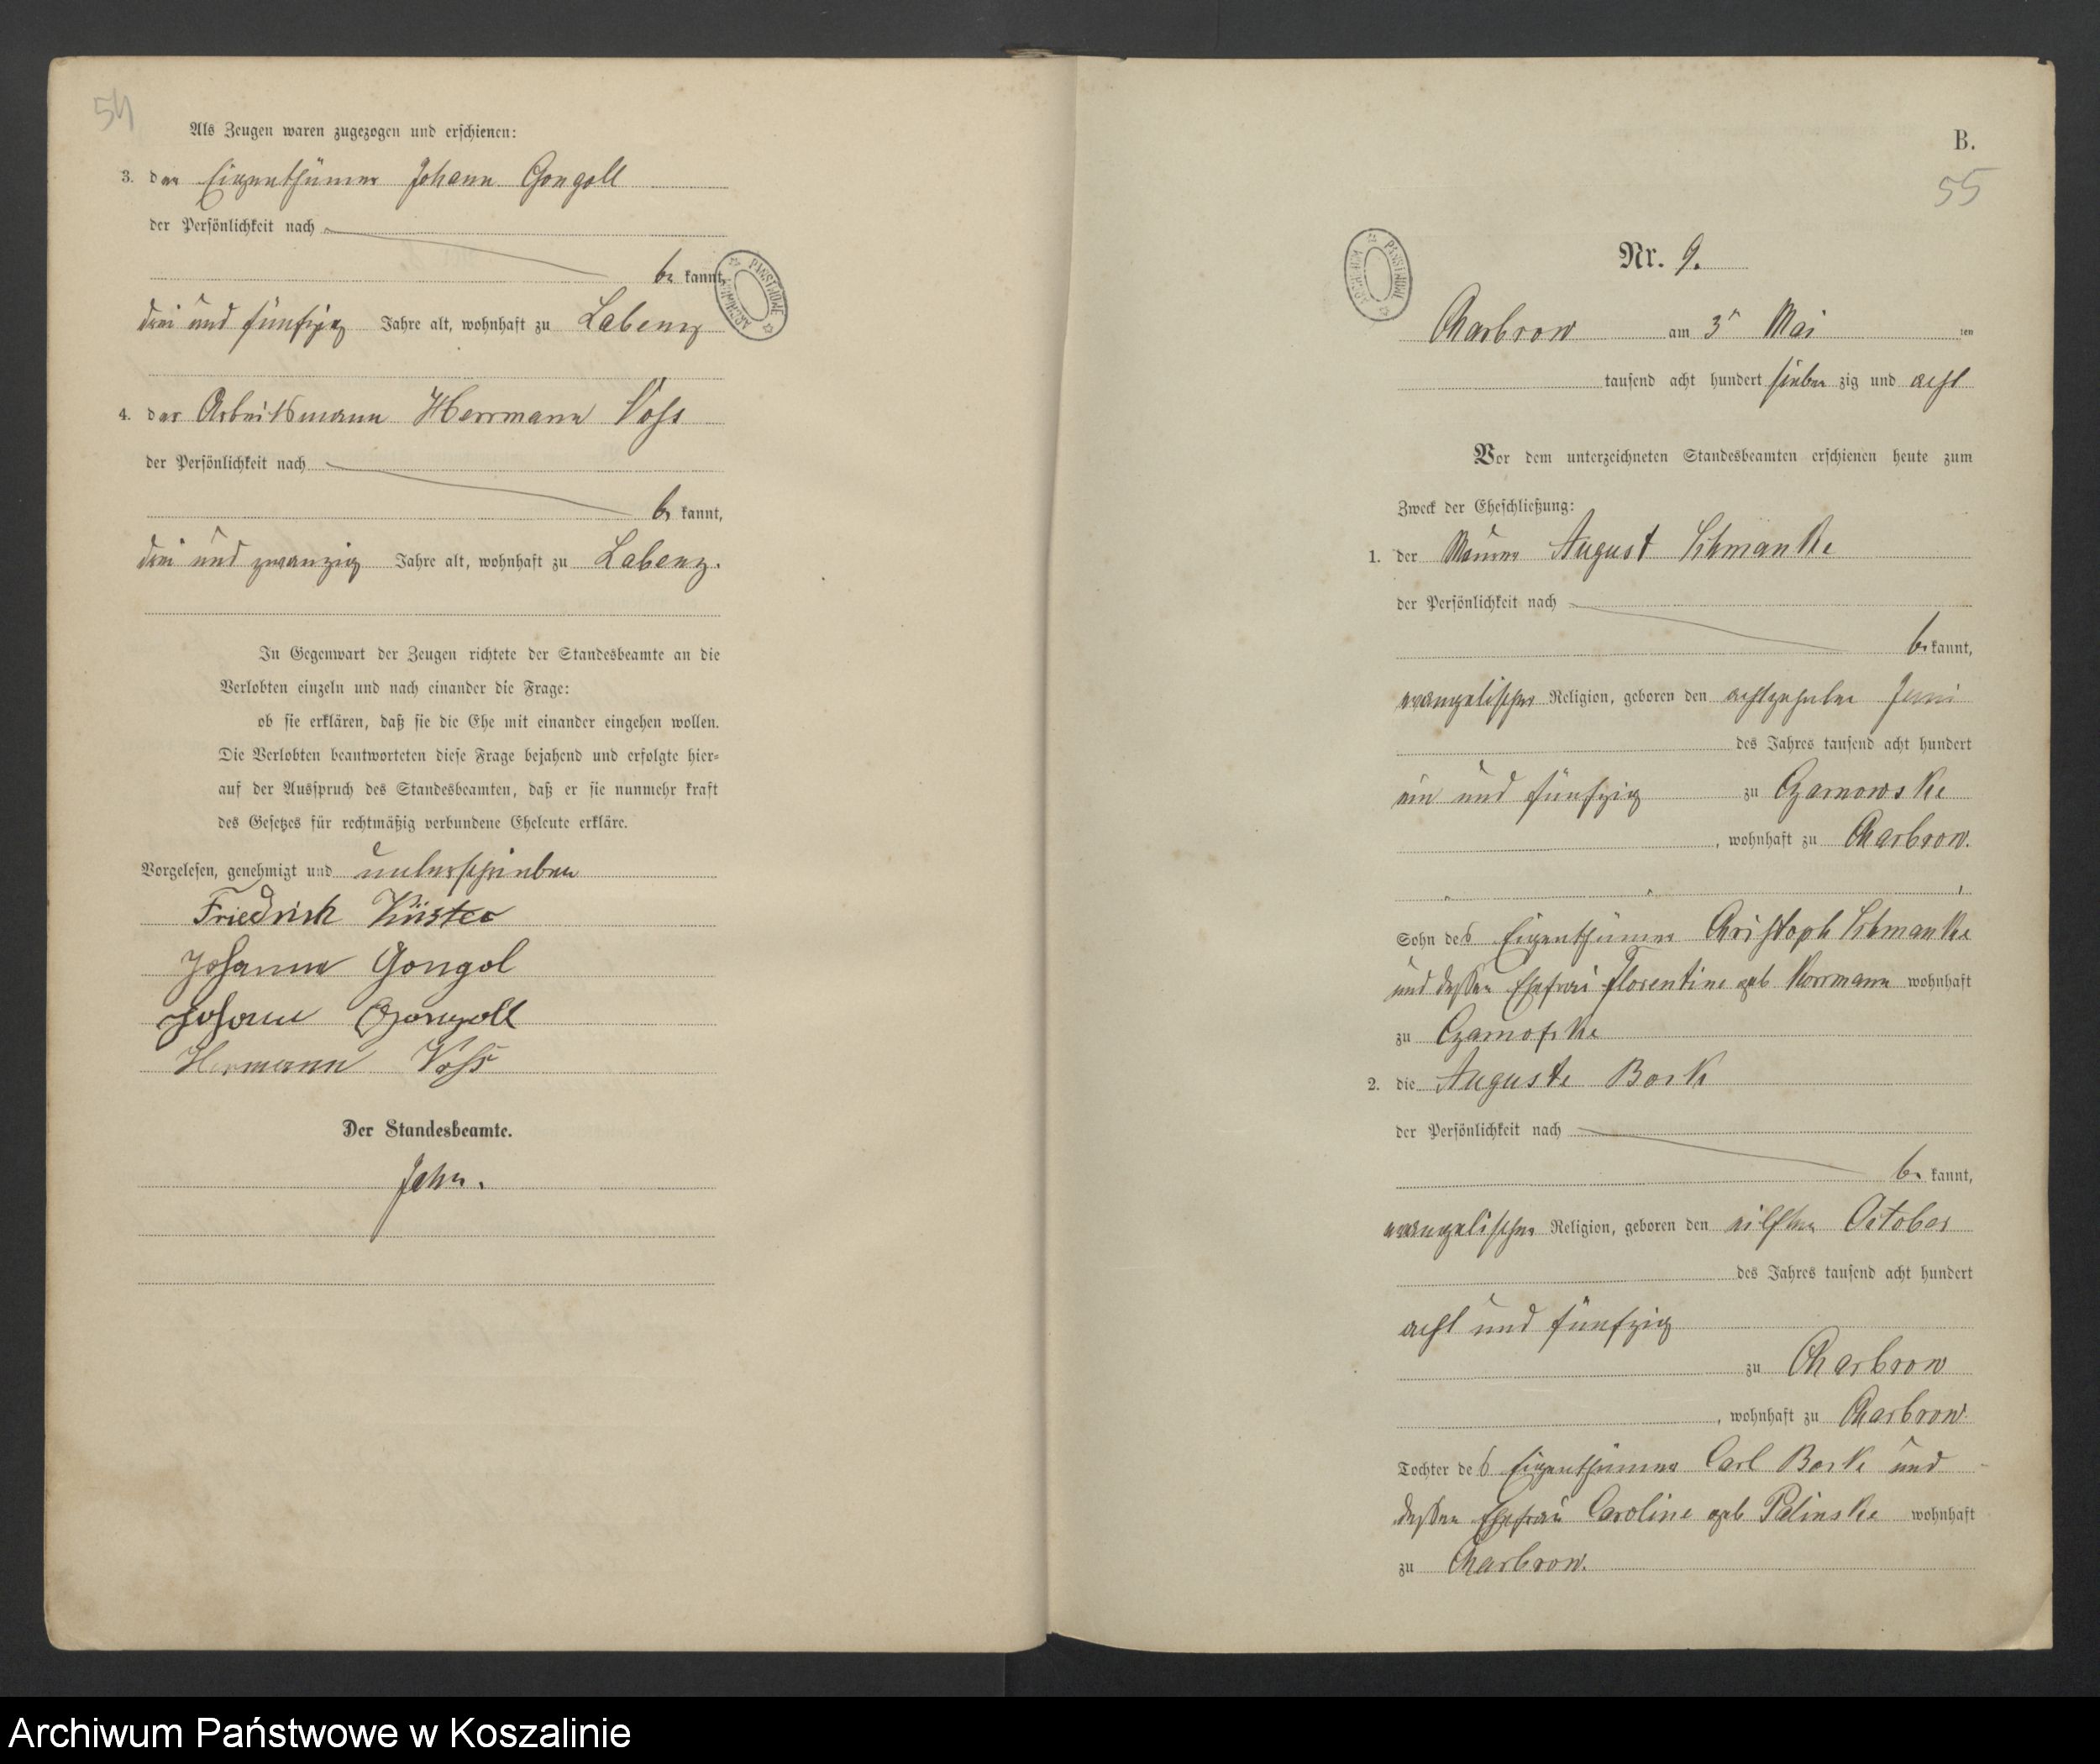 54
Als Zeugen waren zugezogen und erschienen:
3. der Eigenthümer Johann Gongoll
der Persönlichkeit nach
be kannt,
drei und fünfzig Jahre alt, wohnhaft zu Labenz
4. der Arbeitsmann Herrmann Voss
der Persönlichkeit nach
be kannt,
drei und zwanzig Jahre alt, wohnhaft zu Labenz.
In Gegenwart der Zeugen richtete der Standesbeamte an die
Verlobten einzeln und nach einander die Frage:
ob sie erklären, daß sie die Ehe mit einander eingehen wollen.
Die Verlobten beantworteten diese Frage bejahend und erfolgte hier-
auf der Ausspruch des Standesbeamten, daß er sie nunmehr kraft
des Gesetzes für rechtmäßig verbundene Eheleute erkläre.
Vorgelesen, genehmigt und unterschrieben
Friedrich Küster
Johanne Gongol
Johann Gongoll
Hermann Voss
Der Standesbeamte.
Jahn.
B.
55
ARCHIWUM PAŃSTWOWE
Nr. 9.
Charbrow am 3ten Mai ten
tausend acht hundert sieben zig und acht
Vor dem unterzeichneten Standesbeamten erschienen heute zum
Zweck der Eheschließung:
1. der Maurer August Schmanke
der Persönlichkeit nach
be kannt,
evangelischer Religion, geboren den achtzehnten Juni
des Jahres tausend acht hundert
ein und fünfzig zu Czarnowske
, wohnhaft zu Charbrow.
Sohn des Eigenthümer Christoph Schmanke
und dessen Ehefrau Florentine geb Norrmann wohnhaft
zu Czarnofske
2. die Auguste Bork
der Persönlichkeit nach
be kannt,
evangelischer Religion, geboren den eilften October
des Jahres tausend acht hundert
acht und fünfzig
zu Charbrow
, wohnhaft zu Charbrow
Tochter des Eigenthümer Carl Bork und
dessen Ehefrau Caroline geb Palinske wohnhaft
zu Charbrow.
Archiwum Państwowe w Koszalinie